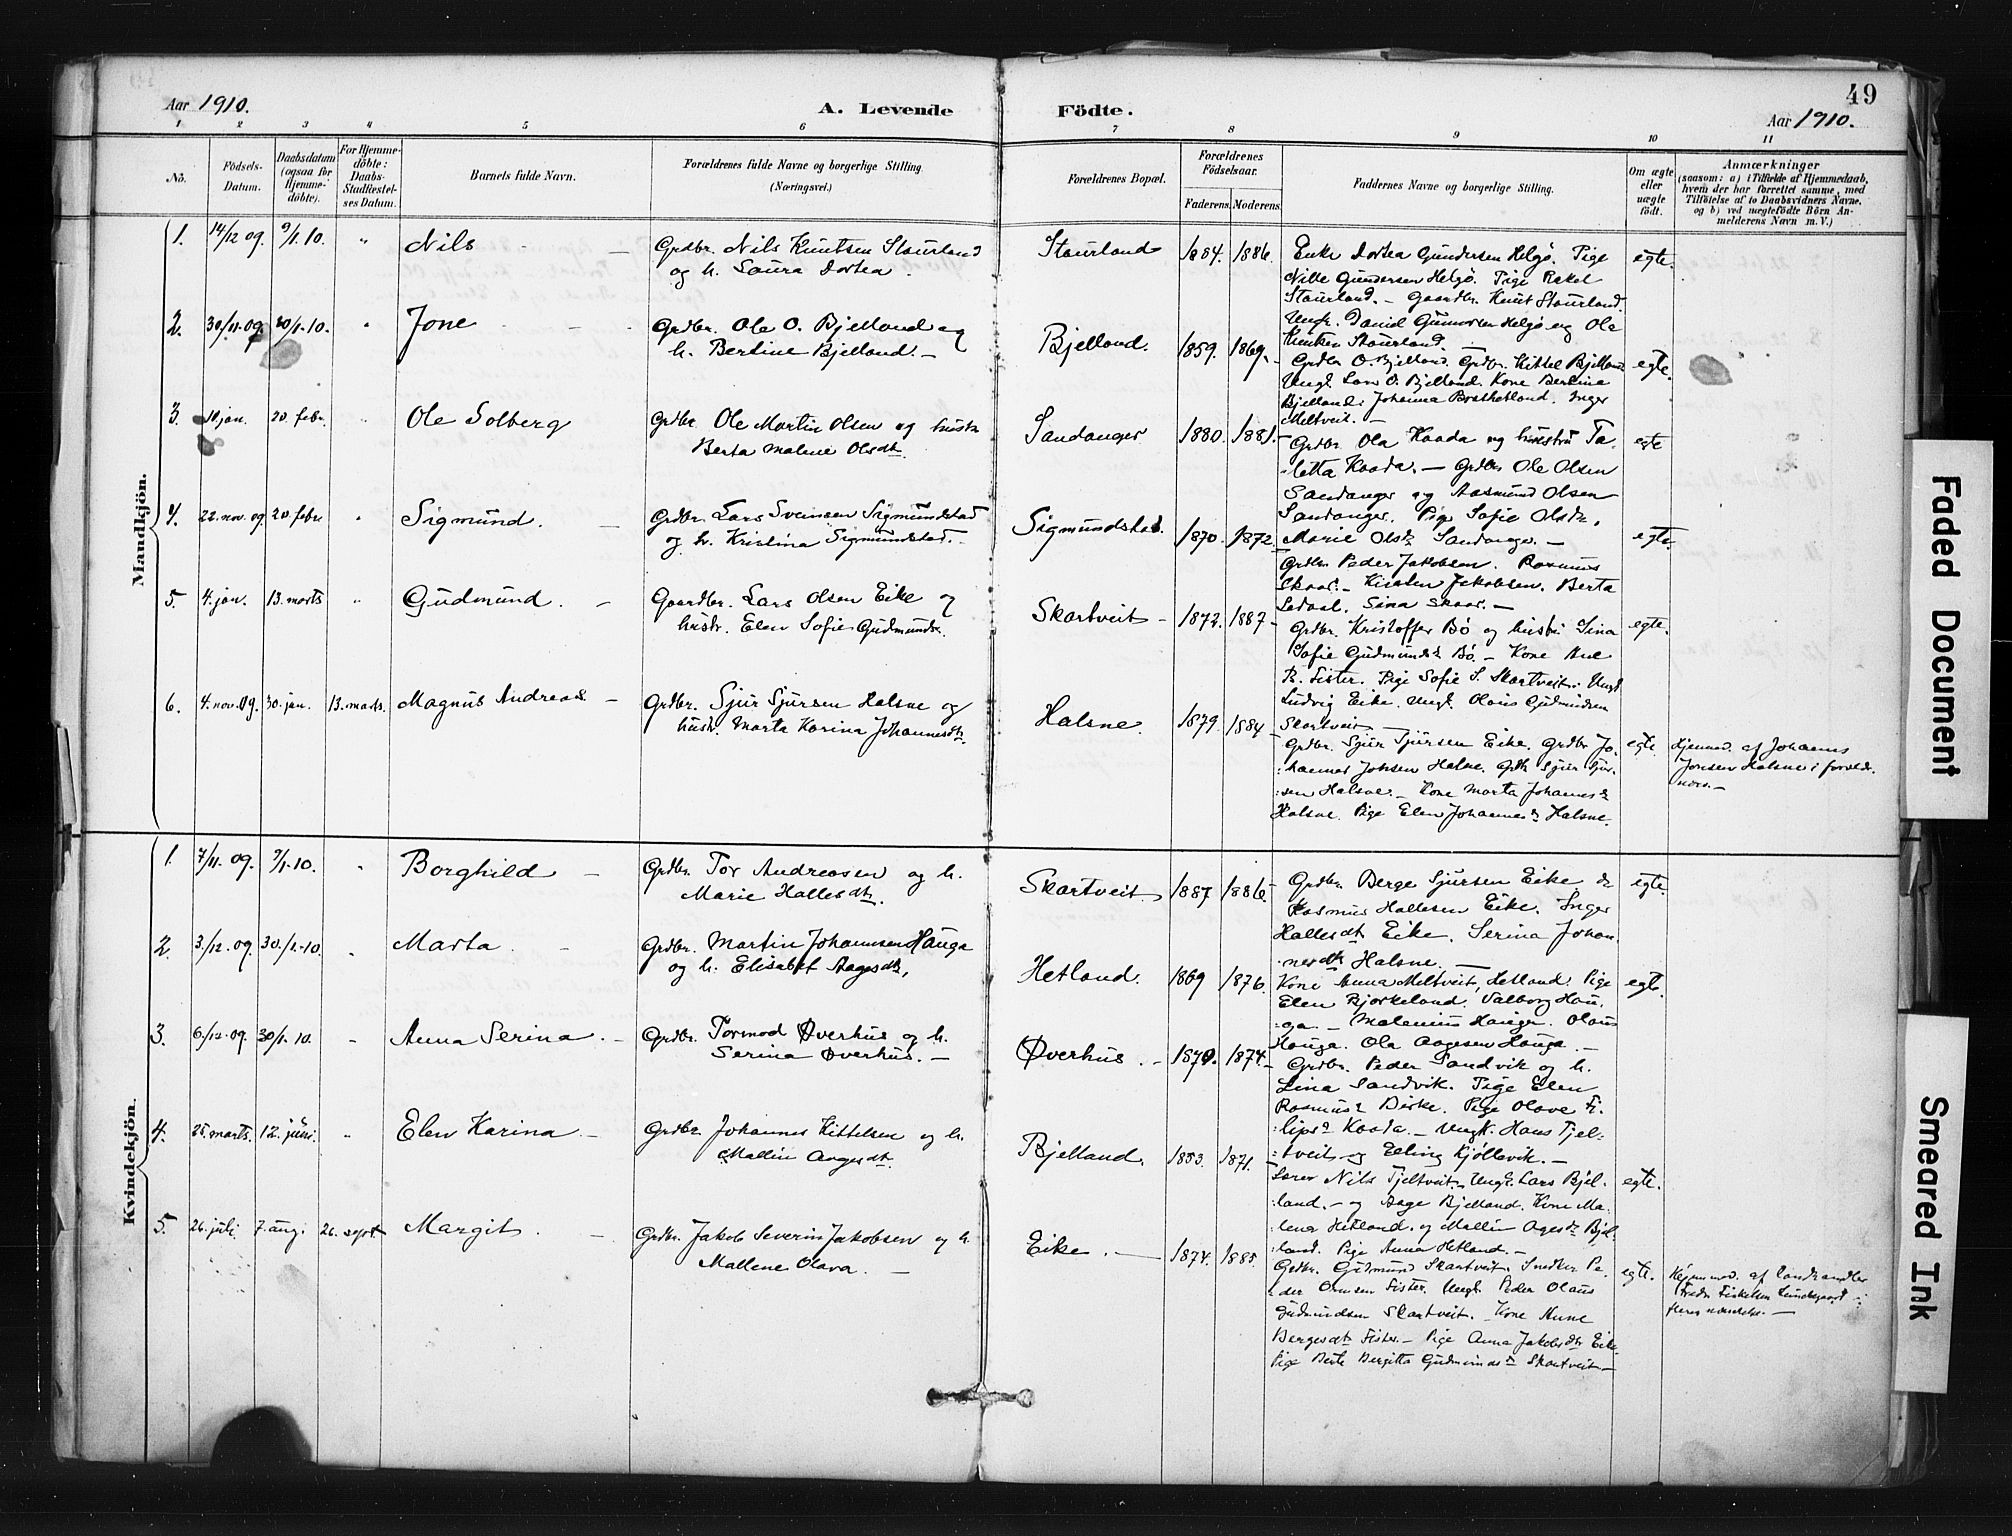 49
Aar 1910.
A. Levende Födte.
Aar 1910.
1 2 3 4 5 6 7 8 9 10 11
No.
Födsels-
Datum.
Daabsdatum
(ogsaa for
Hjemme-
döbte).
For Hjemme-
döbte:
Daabs-
Stadfestel-
ses Datum.
Barnets fulde Navn.
Forældrenes fulde Navne og borgerlige Stilling
(Næringsvei.)
Forældrenes Bopæl.
Forældrenes
Födselsaar.
Faderens. Moderens.
Faddernes Navne og borgerlige Stilling.
Om ægte
eller
uægte
födt.
Anmærkninger
(saasom: a) i Tilfælde af Hjemmedaab,
hvem der har forrettet samme, med
Tilföielse af to Daabsvidners Navne.
og b) ved uægtefödte Börn An-
melderens Navn m. V.)
Mandkjön.
1. 14/12 09. 9/1.10. " Nils
Grdbr. Nils Knutsen Staurland
og h. Laura Dortea.
Staurland 1884. 1886.
Enke Dortea Gundersen Helgö. Pige
Nille Gundersen Helgö. Pige Rakel
Staurland. – Gaardbr. Knut Staurland.
Ungk. David Gundersen Helgö og Ole
Knutsen Staurland.
egte.
2. 30/11-09. 30/1-10. " Jone
Grdbr. Ole O. Bjelland og
h. Bertine Bjelland. –
Bjelland. 1859. 1869.
Grdbr. O. Bjelland. Grdbr. Kittel Bjelland
Ungk. Lars O. Bjelland. Kone Bertina
Bjelland. Johanna Brathetland. Inger
Meltveit. –
egte.
3. 10 jan. 20. febr. " Ole Solberg
Grdbr. Ole Martin Olsen og hustr.
Berta Malene Olsdtr.
Sandanger 1880. 1881.
Grdbr. Ola Kaada og hustru Ta-
letta Kaada. – Grdbr. Ole Olsen
Sandanger og Aasmund Olsen
Sandanger. Pige Sofie Olsdr.
Marie Olsdr Sandanger. –
egte
4. 22. nov. 09 20. febr. " Sigmund. –
Grdbr. Lars Sveinsen Sigmundstad
og h. Kristina Sigmundstad. –
Sigmundstad. 1870. 1872.
Grdbr. Peder Jakobsen. Rasmus
Skaar. – Kirsten Jakobsen. Berta
Sedaal. Sina Skaar. –
egte.
5. 4. jan. 13. marts " Gudmund. –
Gaardbr. Lars Olsen Eike og
hustr. Elen Sofie Gudmundsdr.
Skartveit – 1872. 1887
Grdbr. Kristoffer Bö og hustru Sina
Sofie Gudmundsdr Bö. – Kone Ane
B. Fister. Pige Sofie S. Skartveit. Ungk.
Ludvig Eike. Ungk. Olaus Gudmundsen
Skartveit. –
egte.
6. 4. nov. 09. 30. jan. 13. marts. Magnus Andreas –
Grdbr. Sjur Sjursen Halsne og
hustr. Marta Karina Johannesdtr.
Halsne. 1879. 1884
Grdbr. Sjur Sjursen Eike. Grdbr. Jo-
hannes Johsen Halsne. Grdbr. Sjur Sjur-
sen Halsne. – Kone Marta Johannesdr
Halsne. Pige Elen Johannesdr Halsne.
egte.
Hjemmed. af Johannes
Jonsen Halsne i forældr.
nærv. –
Kvindekjön.
1. 7/11 09. 9/1.10. " Borghild –
Grdbr. Tor Andreasen og h.
Marie Hallesdtr.
Skartveit. 1887 1886.
Grdbr. Berge Sjursen Eike.
Rasmus Hallesen Eike. Inger
Hallesdtr Eike. Serina Johan-
nesdtr Halsne. –
egte.
2. 3/12. 09. 30./1-10. " Marta. –
Grdbr. Martin Johannsen Hauga
og h. Elisabet Aagesdtr.
Hetland. 1869 1876.
Kone Anna Meltveit, Hetland. Pige
Elen Bjorkeland. Valborg Hau-
ga. – Malenius Hauga. Olaus
Hauga. Ola Aagesen Hauga. –
egte.
3. 6/12-09. 30/1-10. " Anna Serina. –
Grdbr. Tormod Øverhus og h.
Serina Øverhus. –
Øverhus. – 1870. 1874.
Grdbr. Peder Sandvik og h.
Lina Sandvik. Pige Elen
Rasmusdr Birke. Pige Olave Fi-
lipsdr Kaada. – Ungk. Hans Tjel-
tveit og Elling Kjöllevik. –
4. 25. marts. 12. juni. " Elen Karina –
Grdbr. Johannes Kittelsen og h.
Mallin Aagesdtr.
Bjelland. 1853. 1871.
Lærer Nils Tjeltveit. Ungk. Lars Bjel-
land. – og Aage Bjelland. Kone Ma-
lena Hetland. og Mallin Agesdr Bjel-
land. Pige Anna Hetland. –
egte.
5. 26. juli 7. aug. 26. sept. Margit. –
Grdbr. Jakob Severin Jakobsen og h.
Mallene Olava. –
Eike. – 1874. 1885.
Grdbr. Gudmund Skartveit. Snedker Pe-
der Ormsen Fister. Ungk. Peder Olaus
Gudmundsen Skartveit. – Kone Anne
Bergesdtr Fister. – Pige Anna Jakobsdtr Eike
Pige Berte Bergitta Gudmundsdr Skartveit –
egte.
Hjemmed. af Landhandler
Faded Document
Smeared Ink